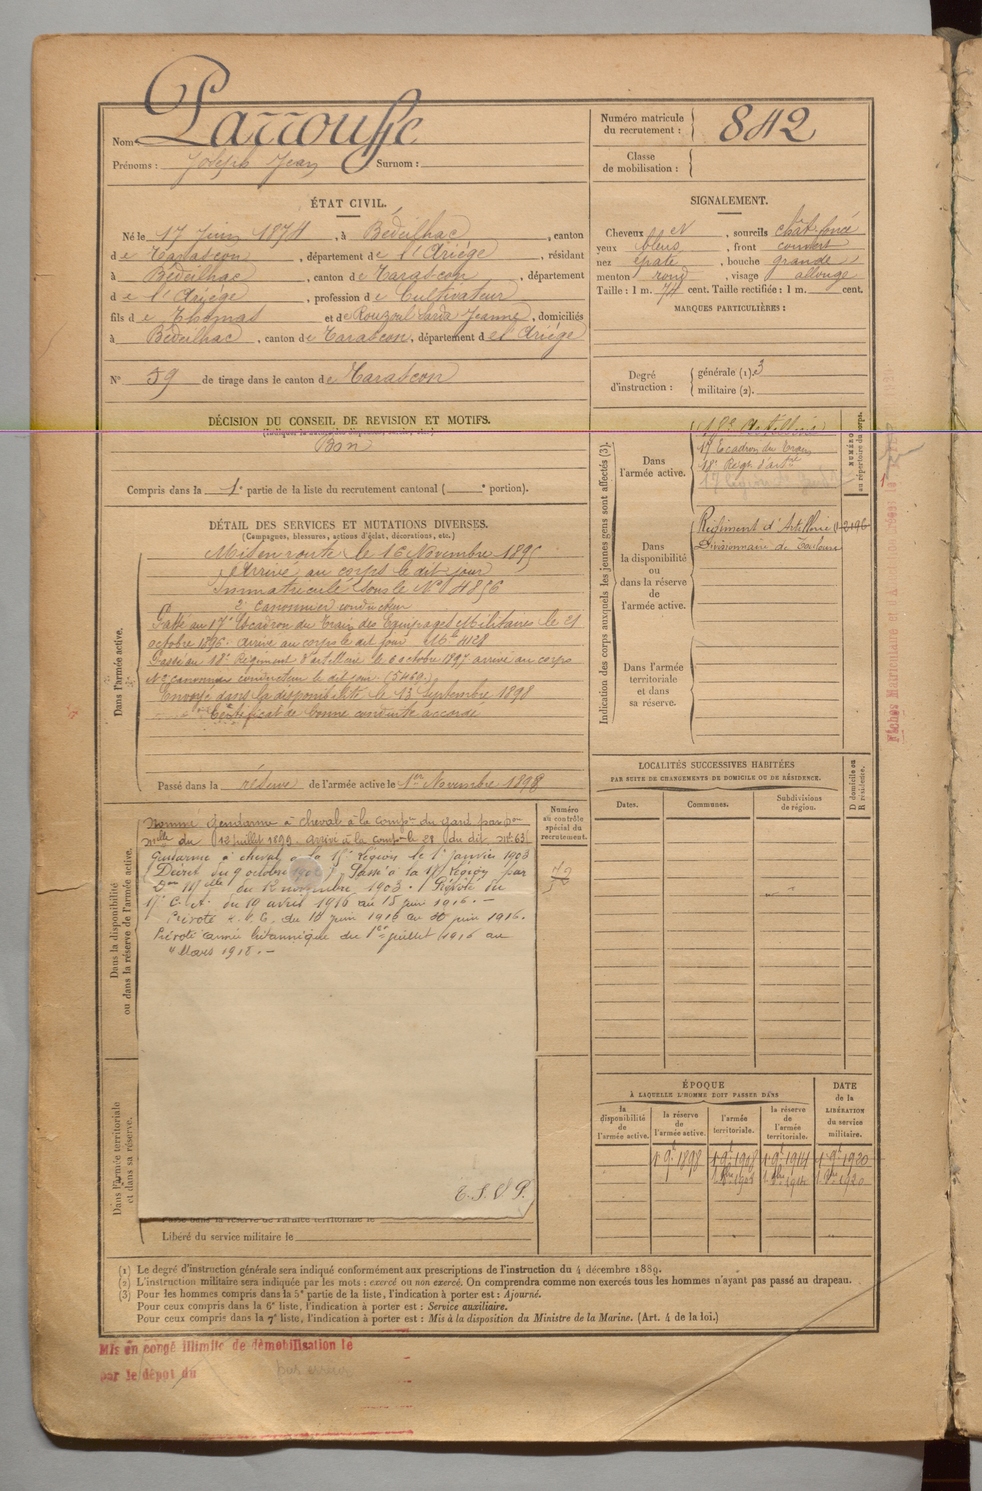 Nom Larrousse
Numéro matricule du recrutement : 842
Prénoms : Joseph Jean Surnom :
Classe de mobilisation :
ÉTAT CIVIL.
Né le 17 Juin 1874, à Bédeilhac, canton
de Tarascon, département de l'Ariége, résidant
à Bédeilhac, canton de Tarascon, département
de l'Ariége, profession de Cultivateur
fils de Thomas et de Rouzoul Sarda Jeanne, domiciliés
à Bédeilhac, canton de Tarascon, département de l'Ariége
N° 59 de tirage dans le canton de Tarascon
SIGNALEMENT.
Cheveux et sourcils chat. foncé
yeux bleus, front couvert
nez épaté, bouche grande
menton rond, visage allongé
Taille : 1 m. 74 cent. Taille rectifiée : 1 m. cent.
MARQUES PARTICULIÈRES :
Degré d'instruction : générale (1). 3
militaire (2).
DÉCISION DU CONSEIL DE REVISION ET MOTIFS.
Bon
Compris dans la 1e partie de la liste du recrutement cantonal ( e portion).
DÉTAIL DES SERVICES ET MUTATIONS DIVERSES.
(Campagnes, blessures, actions d'éclat, décorations, etc.)
Dans l'armée active.
Mis en route le 16 Novembre 1895
Arrivé au corps le dit jour
Immatriculé sous le N° 4856
2e canonnier conducteur
Passé au 17e Escadron du Train des Equipages Militaires le 21
octobre 1896. arrivé au corps le dit jour Mle 4128
Passé au 18e Régiment d'artillerie le 6 octobre 1897 arrivé au corps
canonnier conducteur le dit jour (5469)
Envoyé dans la disponibilité le 13 Septembre 1898
Certificat de bonne conduite accordé
Passé dans la réserve de l'armée active le 1er Novembre 1898
Indication des corps auxquels les jeunes gens sont affectés (3).
Dans l'armée active.
18e Artillerie
17 Escadron du Train
18e Régt d'artie
NUMÉRO au répertoire du corps.
Dans la disponibilité ou dans la réserve de l'armée active.
Régiment d'Artillerie 2196
Divisionnaire de Toulouse
Dans l'armée territoriale et dans sa réserve.
Numéro au contrôle spécial du recrutement.
Dans la disponibilité ou dans la réserve de l'armée active.
Nommé Gendarme à cheval à la Compie du Gard par Don
melle du 12 juillet 1899 arrivé à la compie le 28 du dit Mle 63
Gendarme à cheval à la 15e Légion le 1er janvier 1903
(Décret du 9 octobre 1902) Passé à la 17e Légion par
Don Mielle du 12 novembre 1903. Prévôté du
17e C. A. du 19 avril 1916 au 15 juin 1916. -
Prévôté du 16 juin 1916 au 30 juin 1916.
Prévôté armée britannique du 1er juillet 1916 au
4 Mars 1918. -
T. S. V. P.
Dans l'armée territoriale et dans sa réserve.
Passé dans la réserve de l'armée territoriale le
Libéré du service militaire le
LOCALITÉS SUCCESSIVES HABITÉES
PAR SUITE DE CHANGEMENTS DE DOMICILE OU DE RÉSIDENCE.
Dates. Communes. Subdivisions de région. D domicile ou R résidence.
ÉPOQUE
À LAQUELLE L'HOMME DOIT PASSER DANS
la disponibilité de l'armée active. la réserve de l'armée active. l'armée territoriale. la réserve de l'armée territoriale.
DATE de la LIBÉRATION du service militaire.
(1) Le degré d'instruction générale sera indiqué conformément aux prescriptions de l'instruction du 4 décembre 1889.
(2) L'instruction militaire sera indiquée par les mots : exercé ou non exercé. On comprendra comme non exercés tous les hommes n'ayant pas passé au drapeau.
(3) Pour les hommes compris dans la 5e partie de la liste, l'indication à porter est : Ajourné.
Pour ceux compris dans la 6e liste, l'indication à porter est : Service auxiliaire.
Pour ceux compris dans la 7e liste, l'indication à porter est : Mis à la disposition du Ministre de la Marine. (Art. 4 de la loi.)
Mis en congé illimité de démobilisation le
par le dépôt du
par erreur